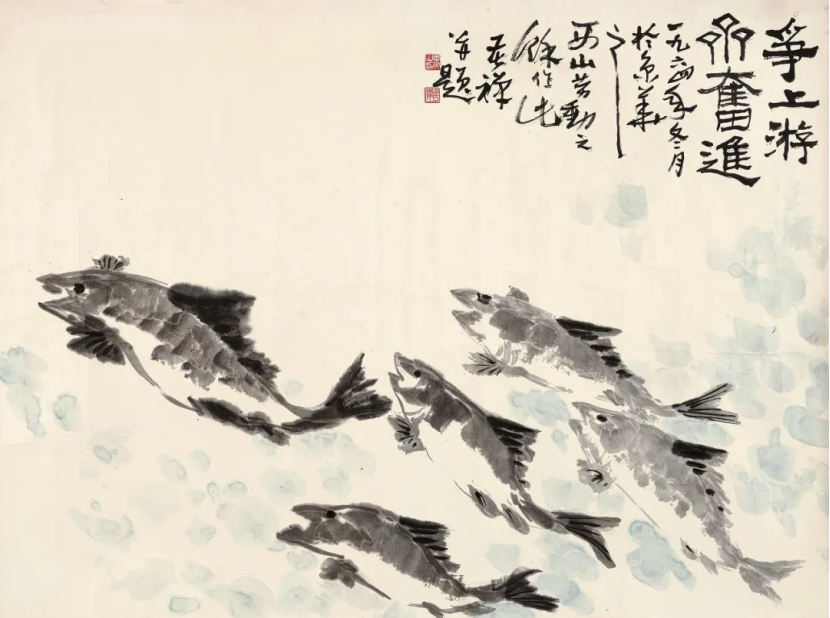 爭上游
齊奮進
一九六四年冬月
於京華
之
西山勞動之
餘作此
苦禪
并題